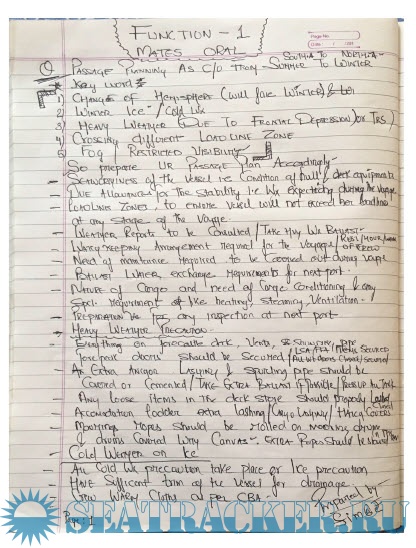 FUNCTION - 1
MATES ORAL
Page No.
Date
SOUTH TO NORTH
Q PASSAGE PLANNING AS C/O FROM SUMMER TO WINTER
Key word
1) CHANGE OF HEMISPHERE (will face WINTER)
2) WINTER ICE / Cold Wx
3) HEAVY WEATHER (DUE TO FRONTAL DEPRESSION or TRS)
4) Crossing different LOADLINE ZONE
5) FOG / RESTRICTED VISIBILITY
So prepare the PASSAGE PLAN Accordingly-
- SEAWORTHINESS of the Vessel i.e Condition of Hull & deck equipments
- DUE ALLOWANCE for the Stability i.e Wx Expecting during the voyage
- LOADLINE ZONES, to ensure vessel will not exceed her loadline
at any stage of the Voyage.
- WEATHER Reports to be Consulted / TAKE HVY Wx BALLAST
- WATCH KEEPING Arrangement Required for the Voyage / REST/HOUR/
OF CREW
- Need of maintenance Required to be Carried out during Voyage
- BALLAST WATER exchange Requirements for next port.
- NATURE OF Cargo and need of Cargo Conditioning & any
Spcl. requirement of like heating, steaming, Ventilation.
- PREPARATION for any inspection at next port
- HEAVY WEATHER PRECAUTION-
- Everything on forecastle deck, Vents, & SOUNDING PIPE
LSA/FFA / Items SECURED
forepeak doors should be Secured /
- AN EXTRA ANCHOR LASHING & spurling pipe should be
Covered or Cemented / TAKE EXTRA BALLAST if possible /
- Any loose items in the deck store should properly Lashed
- Accomodation ladder extra lashing / Cargo Lashing / HATCH COVERS
- MOORINGS Ropes Should be Rolled on mooring drums
& drums Covered With Canvas - EXTRA Ropes Should be
Cold WEATHER or Ice
- All Cold Wx precaution take place or Ice precaution
- HAVE Sufficent trim of the Vessel for drainage.
- Crew WARM Cloths as per CBA.
Prepared by -
Page: 1
SEATRACKER.RU